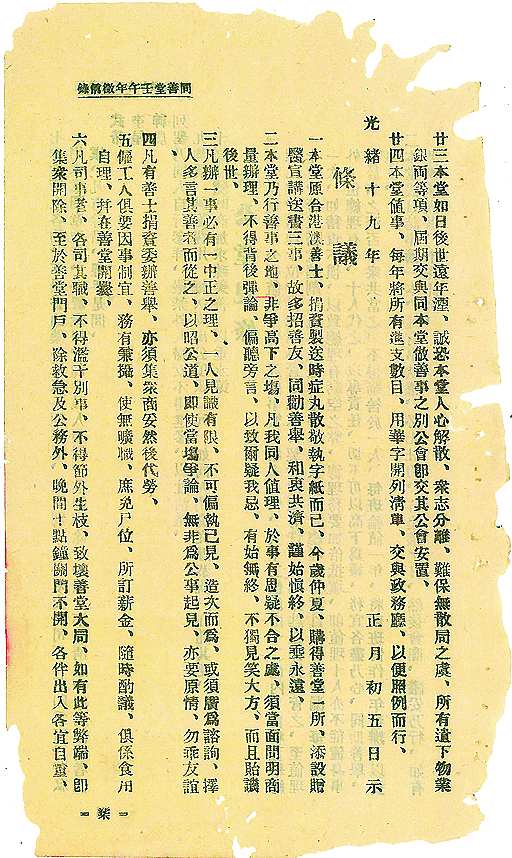 同善堂壬午年徵信錄
廿三本堂如日後世遠年湮、誠恐本堂人心解散、衆志分離、難保無散局之處、所有遺下物業
銀両等項、屆期交與同本堂做善事之別公會卽交其公會安置、
廿四本堂値事、每年將所有進支數目、用華字開列清單、交與政務廳、以便照例而行、
光緒十九年 正月初五日示
條議
一本堂原合港澳善士、捐資製送時症丸散敬執字紙而已、今歲仲夏、購得善堂一所、添設贈
醫宣講送書三事、故多招善友、同勸善舉、和衷共濟、謹始愼終、以垂永遠、
二本堂乃行善事之地、非爭高下之塲、凡我同人值理、於事有思疑不合之處、須當面問明商
量辦理、不得背後彈論、偏聽旁言、以致爾疑我忌、有始無終、不獨見笑大方、而且貽譏
後世、
三凡辦一事必有一中正之理、一人見識有限、不可偏執己見、造次而爲、或須廣爲諮詢、擇
人多言其善者而從之、以昭公道、卽使當塲爭論、無非爲公事起見、亦要原情、勿乖友誼
四凡有善士捐資委辦善舉、亦須集衆商妥然後代勞、
五僱工人俱要因事制宜、務有兼攝、使無曠職、庶免尸位、所訂薪金、隨時酌議、俱係食用
自理、幷在善堂開爨、
六凡司事者、各司其職、不得濫干別事、不得節外生枝、致壞善堂大局、如有此等弊端、卽
集衆開除、至於善堂門戶、除救急及公務外、晚間十點鐘關門不開、各伴出入各宜自重、
柒